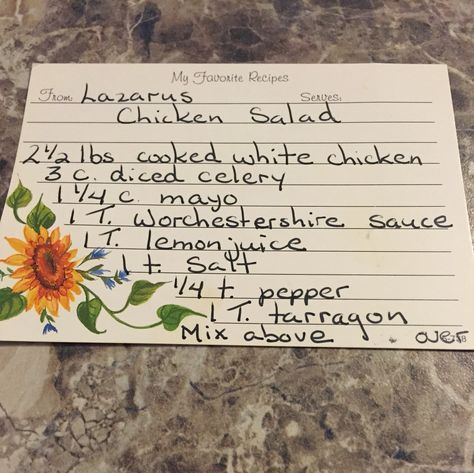 My Favorite Recipes
From: Lazarus Serves:
Chicken Salad
2 1/2 lbs cooked white chicken
3 c. diced celery
1 1/4 c. mayo
1 T. Worchestershire sauce
1 T. lemon juice
1 t. Salt
1/4 t. pepper
1 T. tarragon
Mix above over